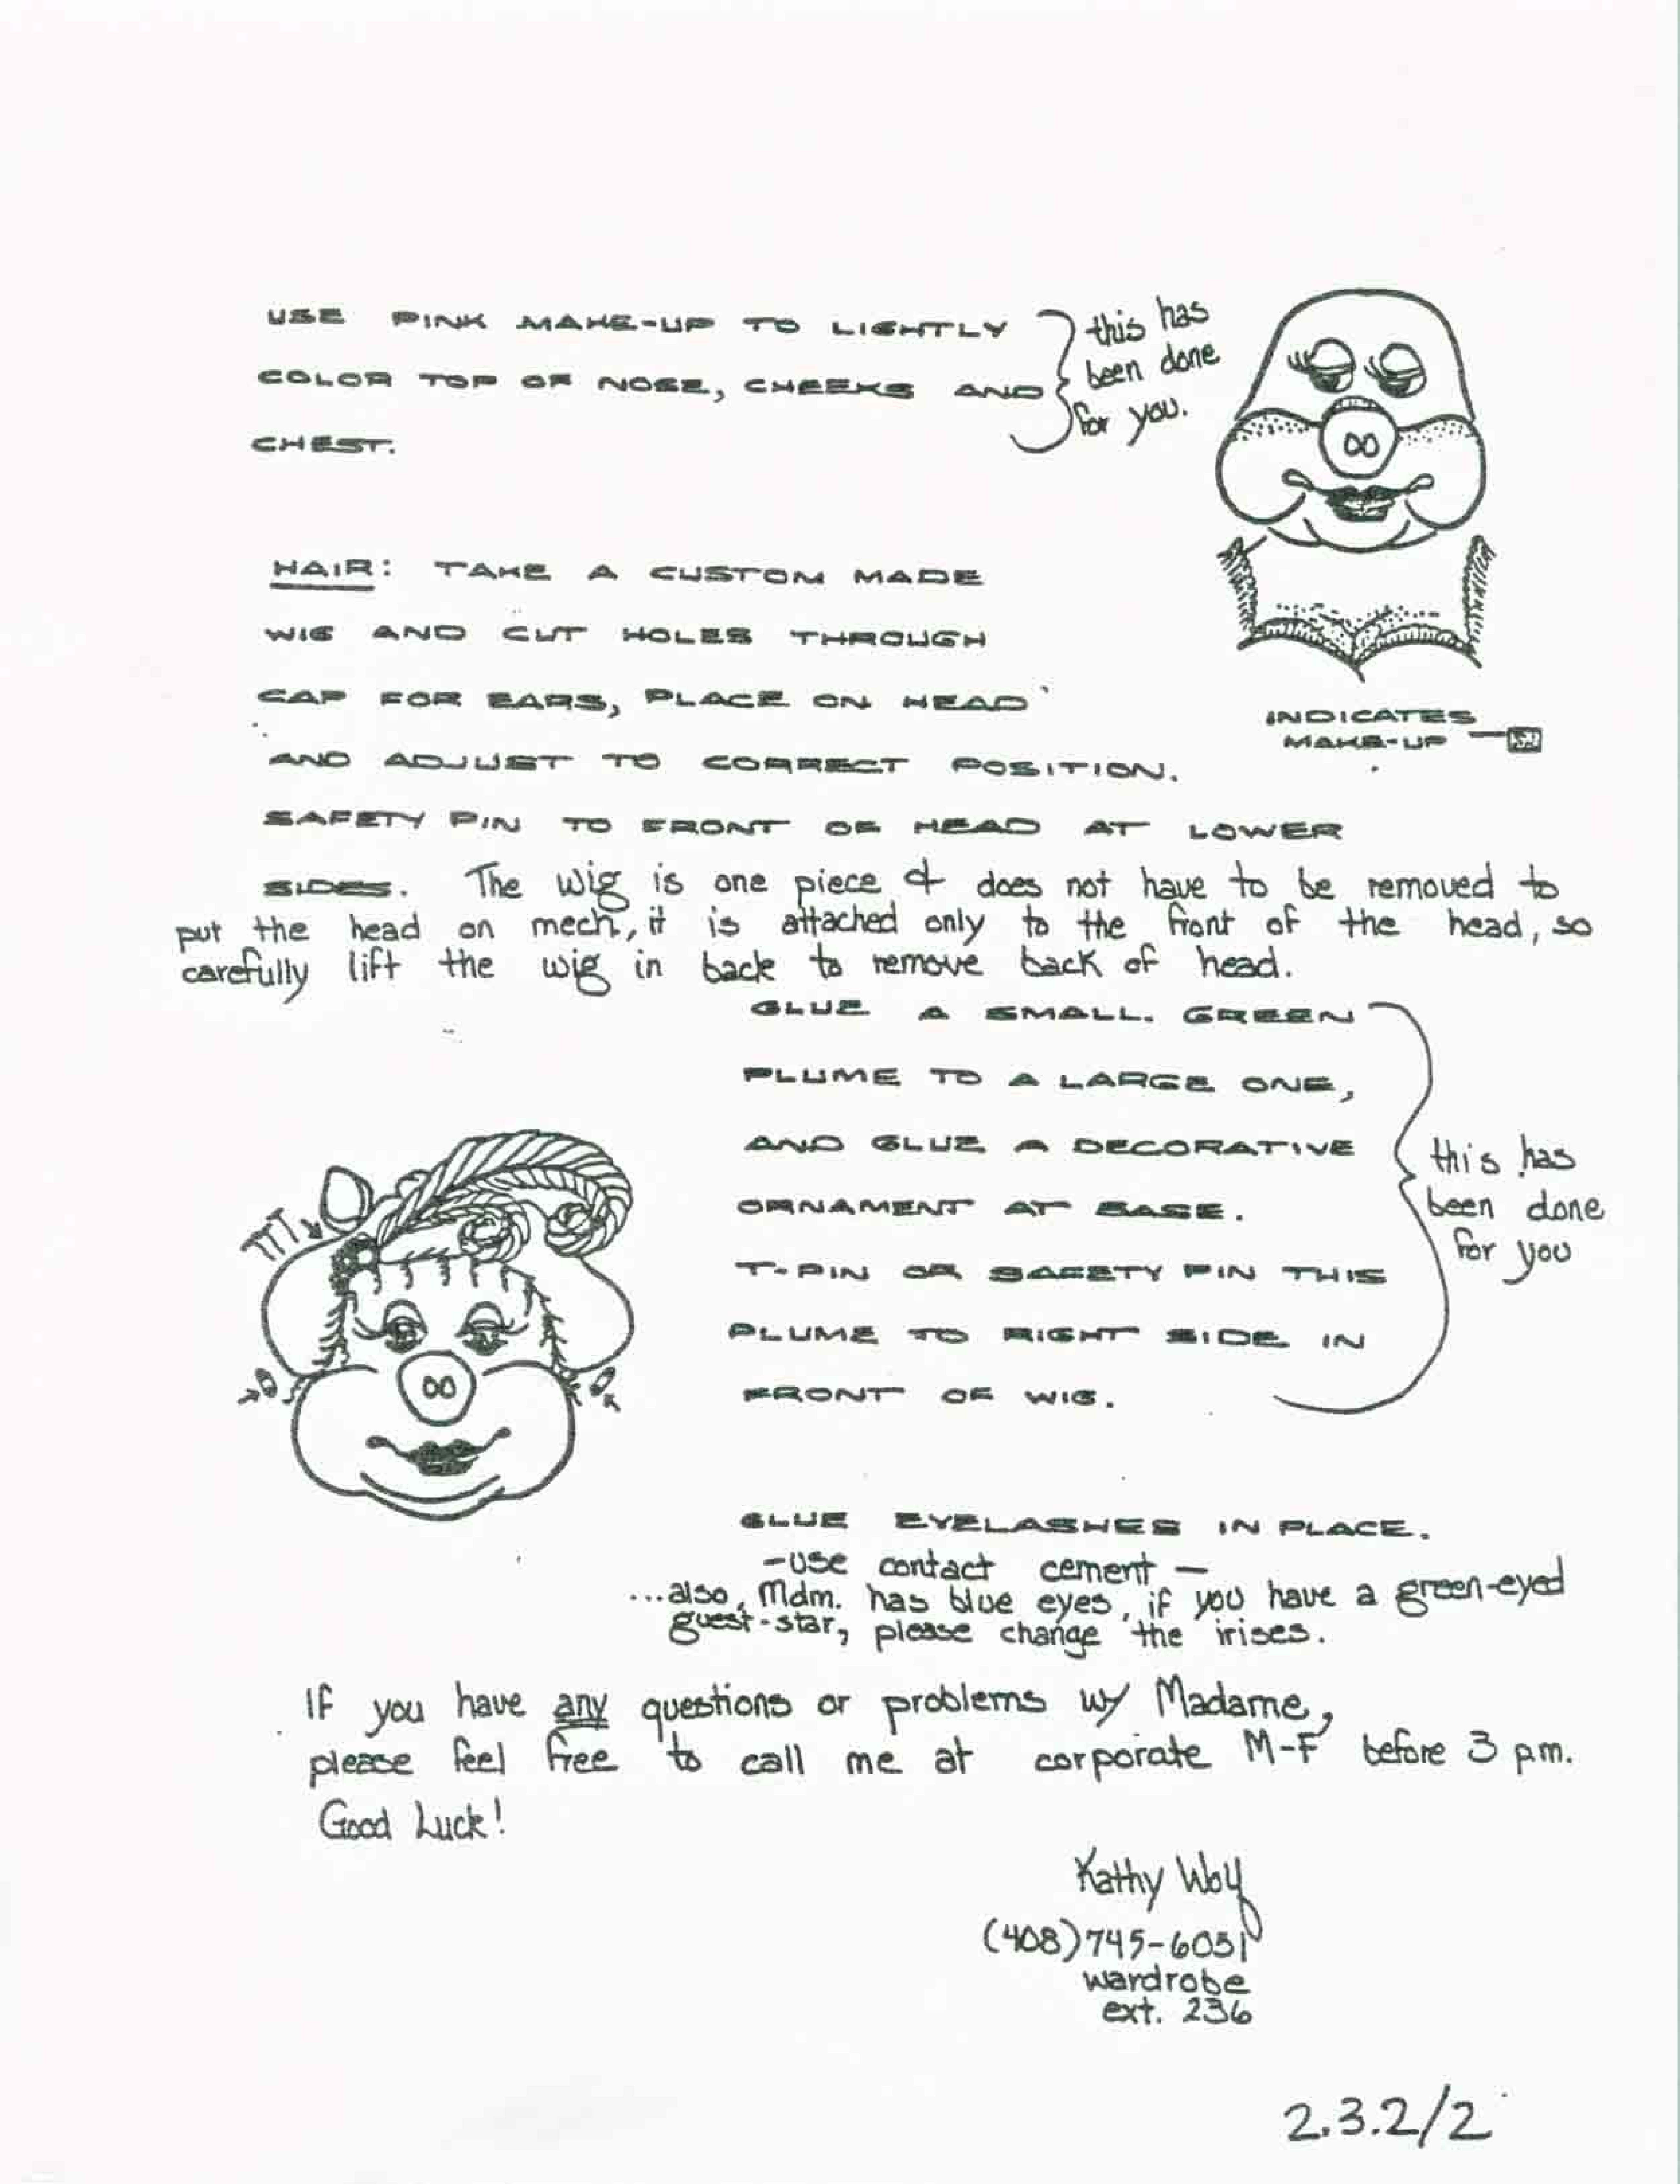 USE PINK MAKE-UP TO LIGHTLY
COLOR TOP OF NOSE, CHEEKS AND
CHEST.
this has
been done
for you.
HAIR: TAKE A CUSTOM MADE
WIG AND CUT HOLES THROUGH
CAP FOR EARS, PLACE ON HEAD
AND ADJUST TO CORRECT POSITION.
INDICATES
MAKE-UP
SAFETY PIN TO FRONT OF HEAD AT LOWER
SIDES. The wig is one piece & does not have to be removed to
put the head on mech, it is attached only to the front of the head, so
carefully lift the wig in back to remove back of head.
GLUE A SMALL. GREEN
PLUME TO A LARGE ONE,
AND GLUE A DECORATIVE
ORNAMENT AT BASE.
T-PIN OR SAFETY PIN THIS
PLUME TO RIGHT SIDE IN
FRONT OF WIG.
this has
been done
for you
GLUE EYELASHES IN PLACE.
-use contact cement -
...also, Mdm. has blue eyes, if you have a green-eyed
guest-star, please change the irises.
If you have any questions or problems w/ Madame,
please feel free to call me at corporate M-F before 3 p.m.
Good Luck!
Kathy Woy
(408)745-6051
wardrobe
ext. 236
2.3.2/2